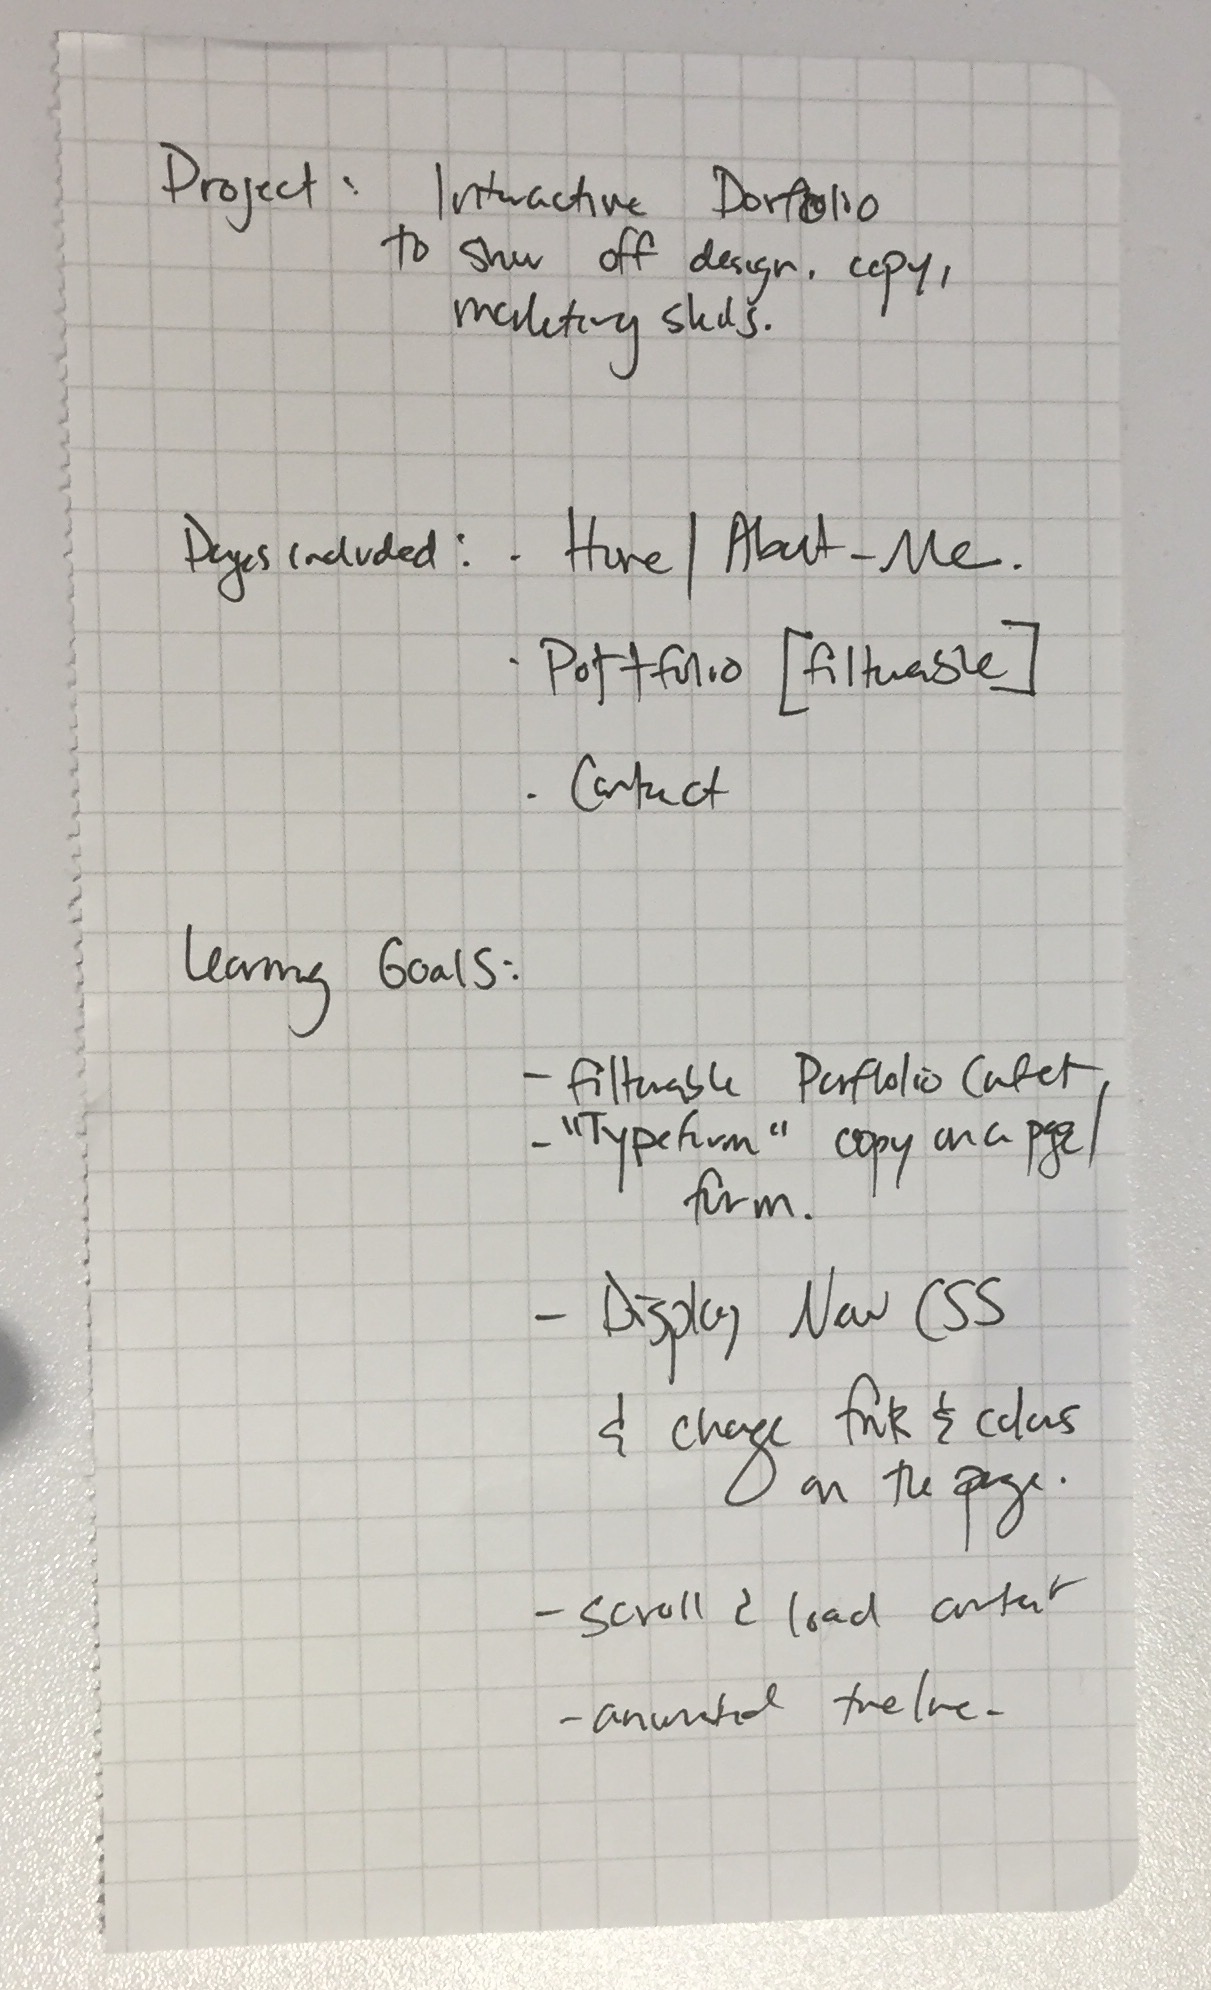 Project: Interactive Portfolio
to show off design, copy,
marketing skills.
Pages included: . Home / About-Me.
. Portfolio [filterable]
. Contact
Learning Goals:
- filterable Portfolio
- "Typeform" copy on a page/
form.
- Display New CSS
& change font & colors
on the page.
- scroll & load content
- animated